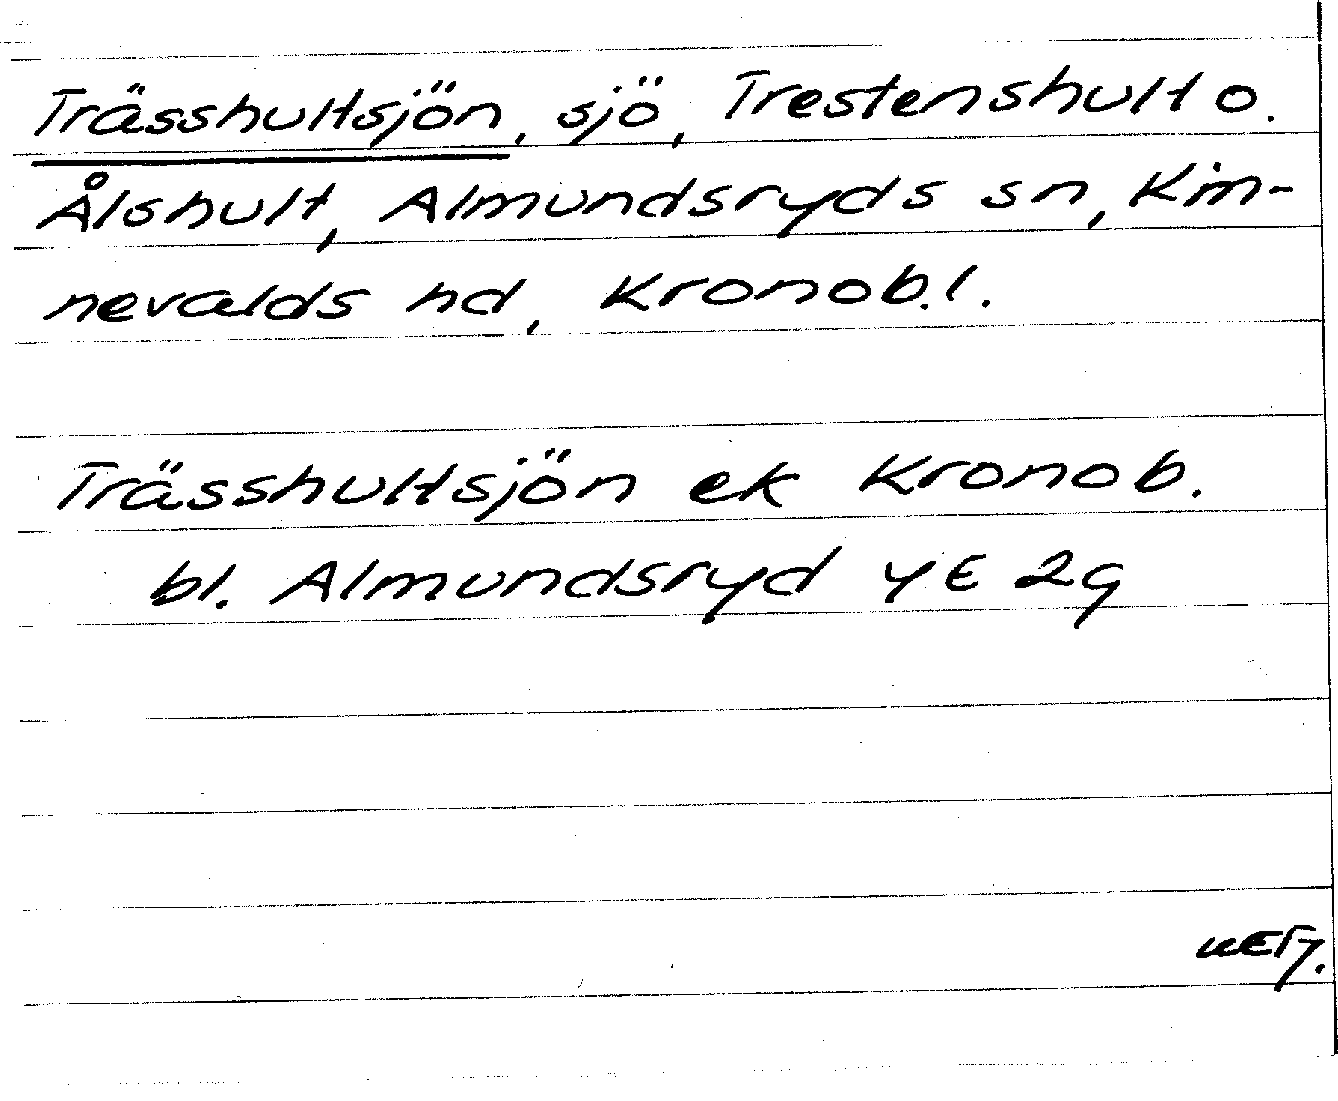 Trässhultsjön, sjö, Trestenshult o.
Ålshult, Almundsryds sn, Kin-
nevalds hd, Kronob. l.
Trässhultsjön ek Kronob.
bl. Almundsryd 4E 2g